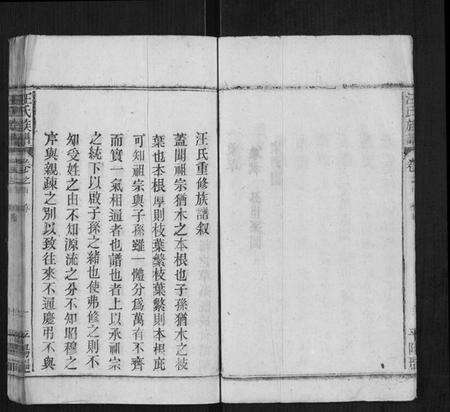 汪氏重修族譜叙
蓋聞祖宗猶木之本根也子孫猶木之枝
葉也本根厚則枝葉繁枝葉繁則本根庇
可知祖宗與子孫雖一體分爲萬有不齊
而實一氣相通者也譜也者上以承祖宗
之統下以啟子孫之緒也使弗修之則不
知受姓之由不知源流之分不知昭穆之
序與親疎之別以致往來不通慶弔不與
汪氏族譜
卷之
汪氏族
卷
平陽